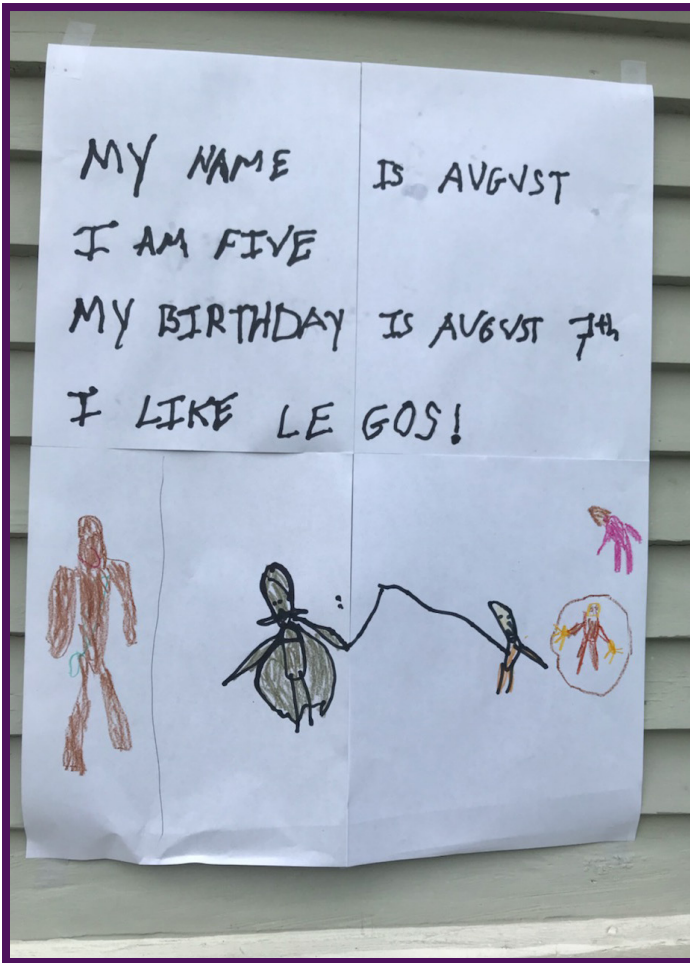 MY NAME IS AUGUST
I AM FIVE
MY BIRTHDAY IS AUGUST 7th
I LIKE LE GOS!